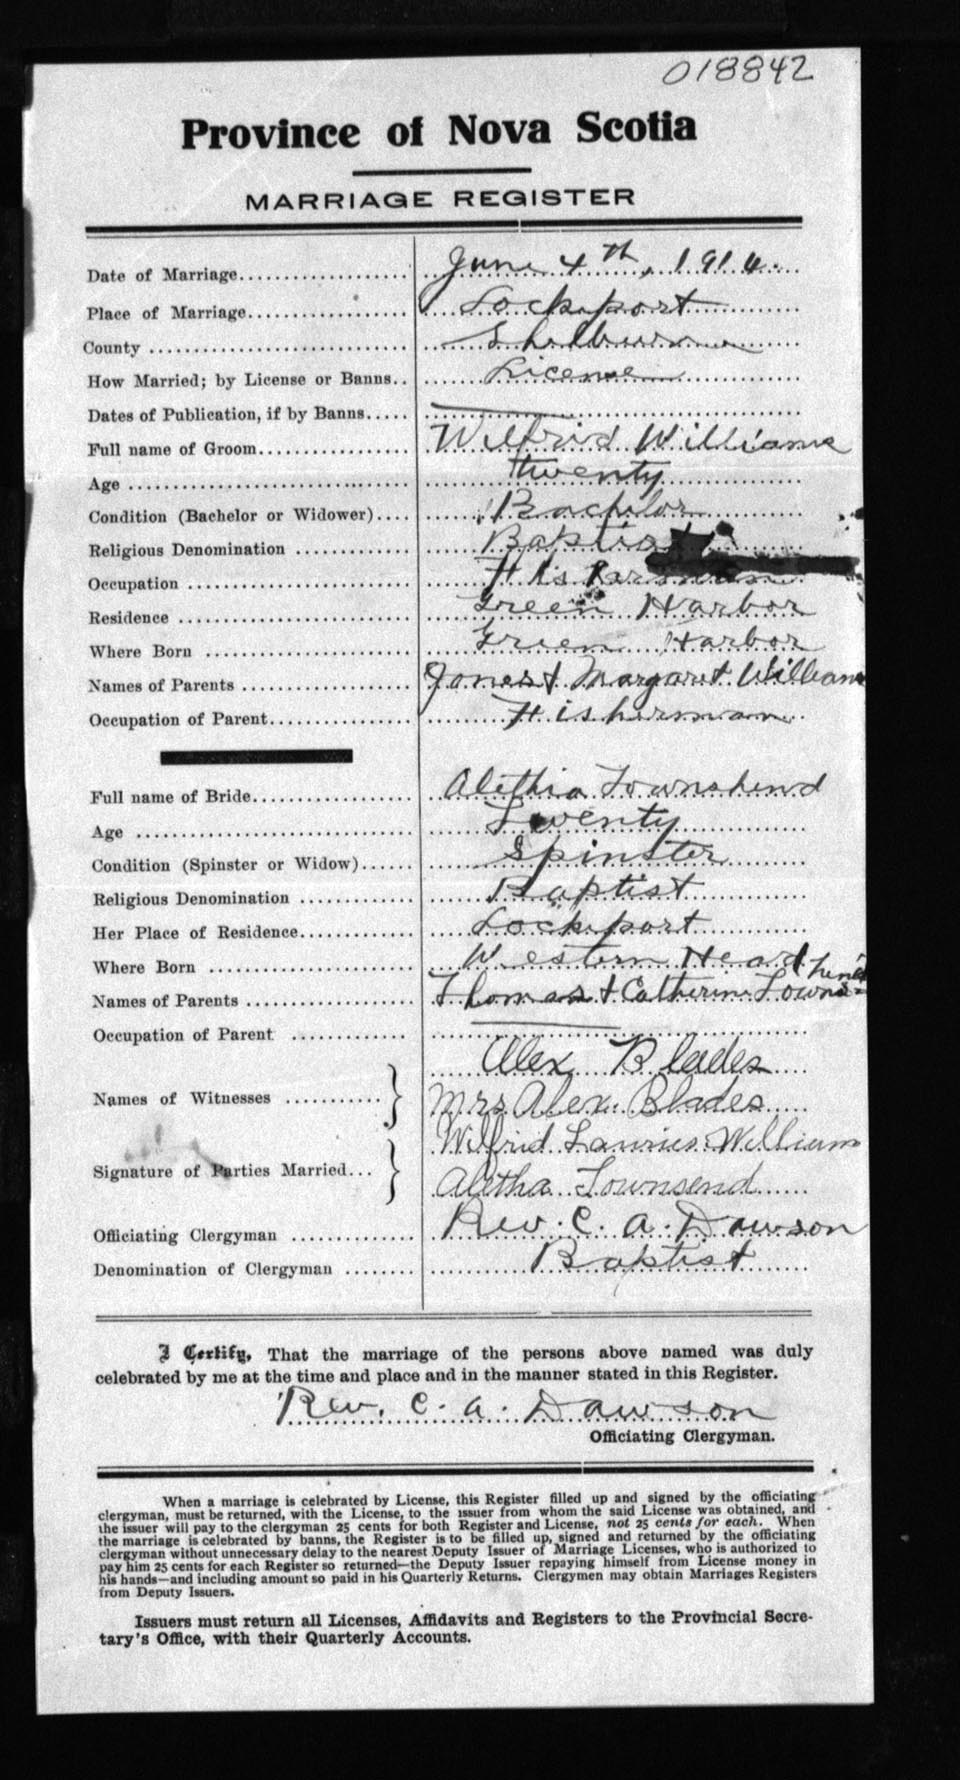 018842
Province of Nova Scotia
MARRIAGE REGISTER
Date of Marriage June 4th, 1914.
Place of Marriage Lockeport
County Shelburne
How Married; by License or Banns License
Dates of Publication, if by Banns
Full name of Groom Wilfrid Williams
Age twenty
Condition (Bachelor or Widower) Bachelor
Religious Denomination Baptist
Occupation
Residence Green Harbor
Where Born Green Harbor
Names of Parents James & Margaret Williams
Occupation of Parent Fisherman
Full name of Bride Alethia Townshend
Age Twenty
Condition (Spinster or Widow) Spinster
Religious Denomination Baptist
Her Place of Residence Lockeport
Where Born Western Head
Names of Parents Thomas & Catherine Towns-hend
Occupation of Parent
Names of Witnesses Alex Blades
Mrs Alex. Blades
Signature of Parties Married Wilfrid Laurier Williams
Aletha Townsend
Officiating Clergyman Rev. C. A. Dawson
Denomination of Clergyman Baptist
I Certify, That the marriage of the persons above named was duly
celebrated by me at the time and place and in the manner stated in this Register.
Rev. C. A. Dawson
Officiating Clergyman.
When a marriage is celebrated by License, this Register filled up and signed by the officiating
clergyman, must be returned, with the License, to the issuer from whom the said License was obtained, and
the issuer will pay to the clergyman 25 cents for both Register and License, not 25 cents for each. When
the marriage is celebrated by banns, the Register is to be filled up, signed and returned by the officiating
clergyman without unnecessary delay to the nearest Deputy Issuer of Marriage Licenses, who is authorized to
pay him 25 cents for each Register so returned—the Deputy Issuer repaying himself from License money in
his hands—and including amount so paid in his Quarterly Returns. Clergymen may obtain Marriages Registers
from Deputy Issuers.
Issuers must return all Licenses, Affidavits and Registers to the Provincial Secre-
tary's Office, with their Quarterly Accounts.